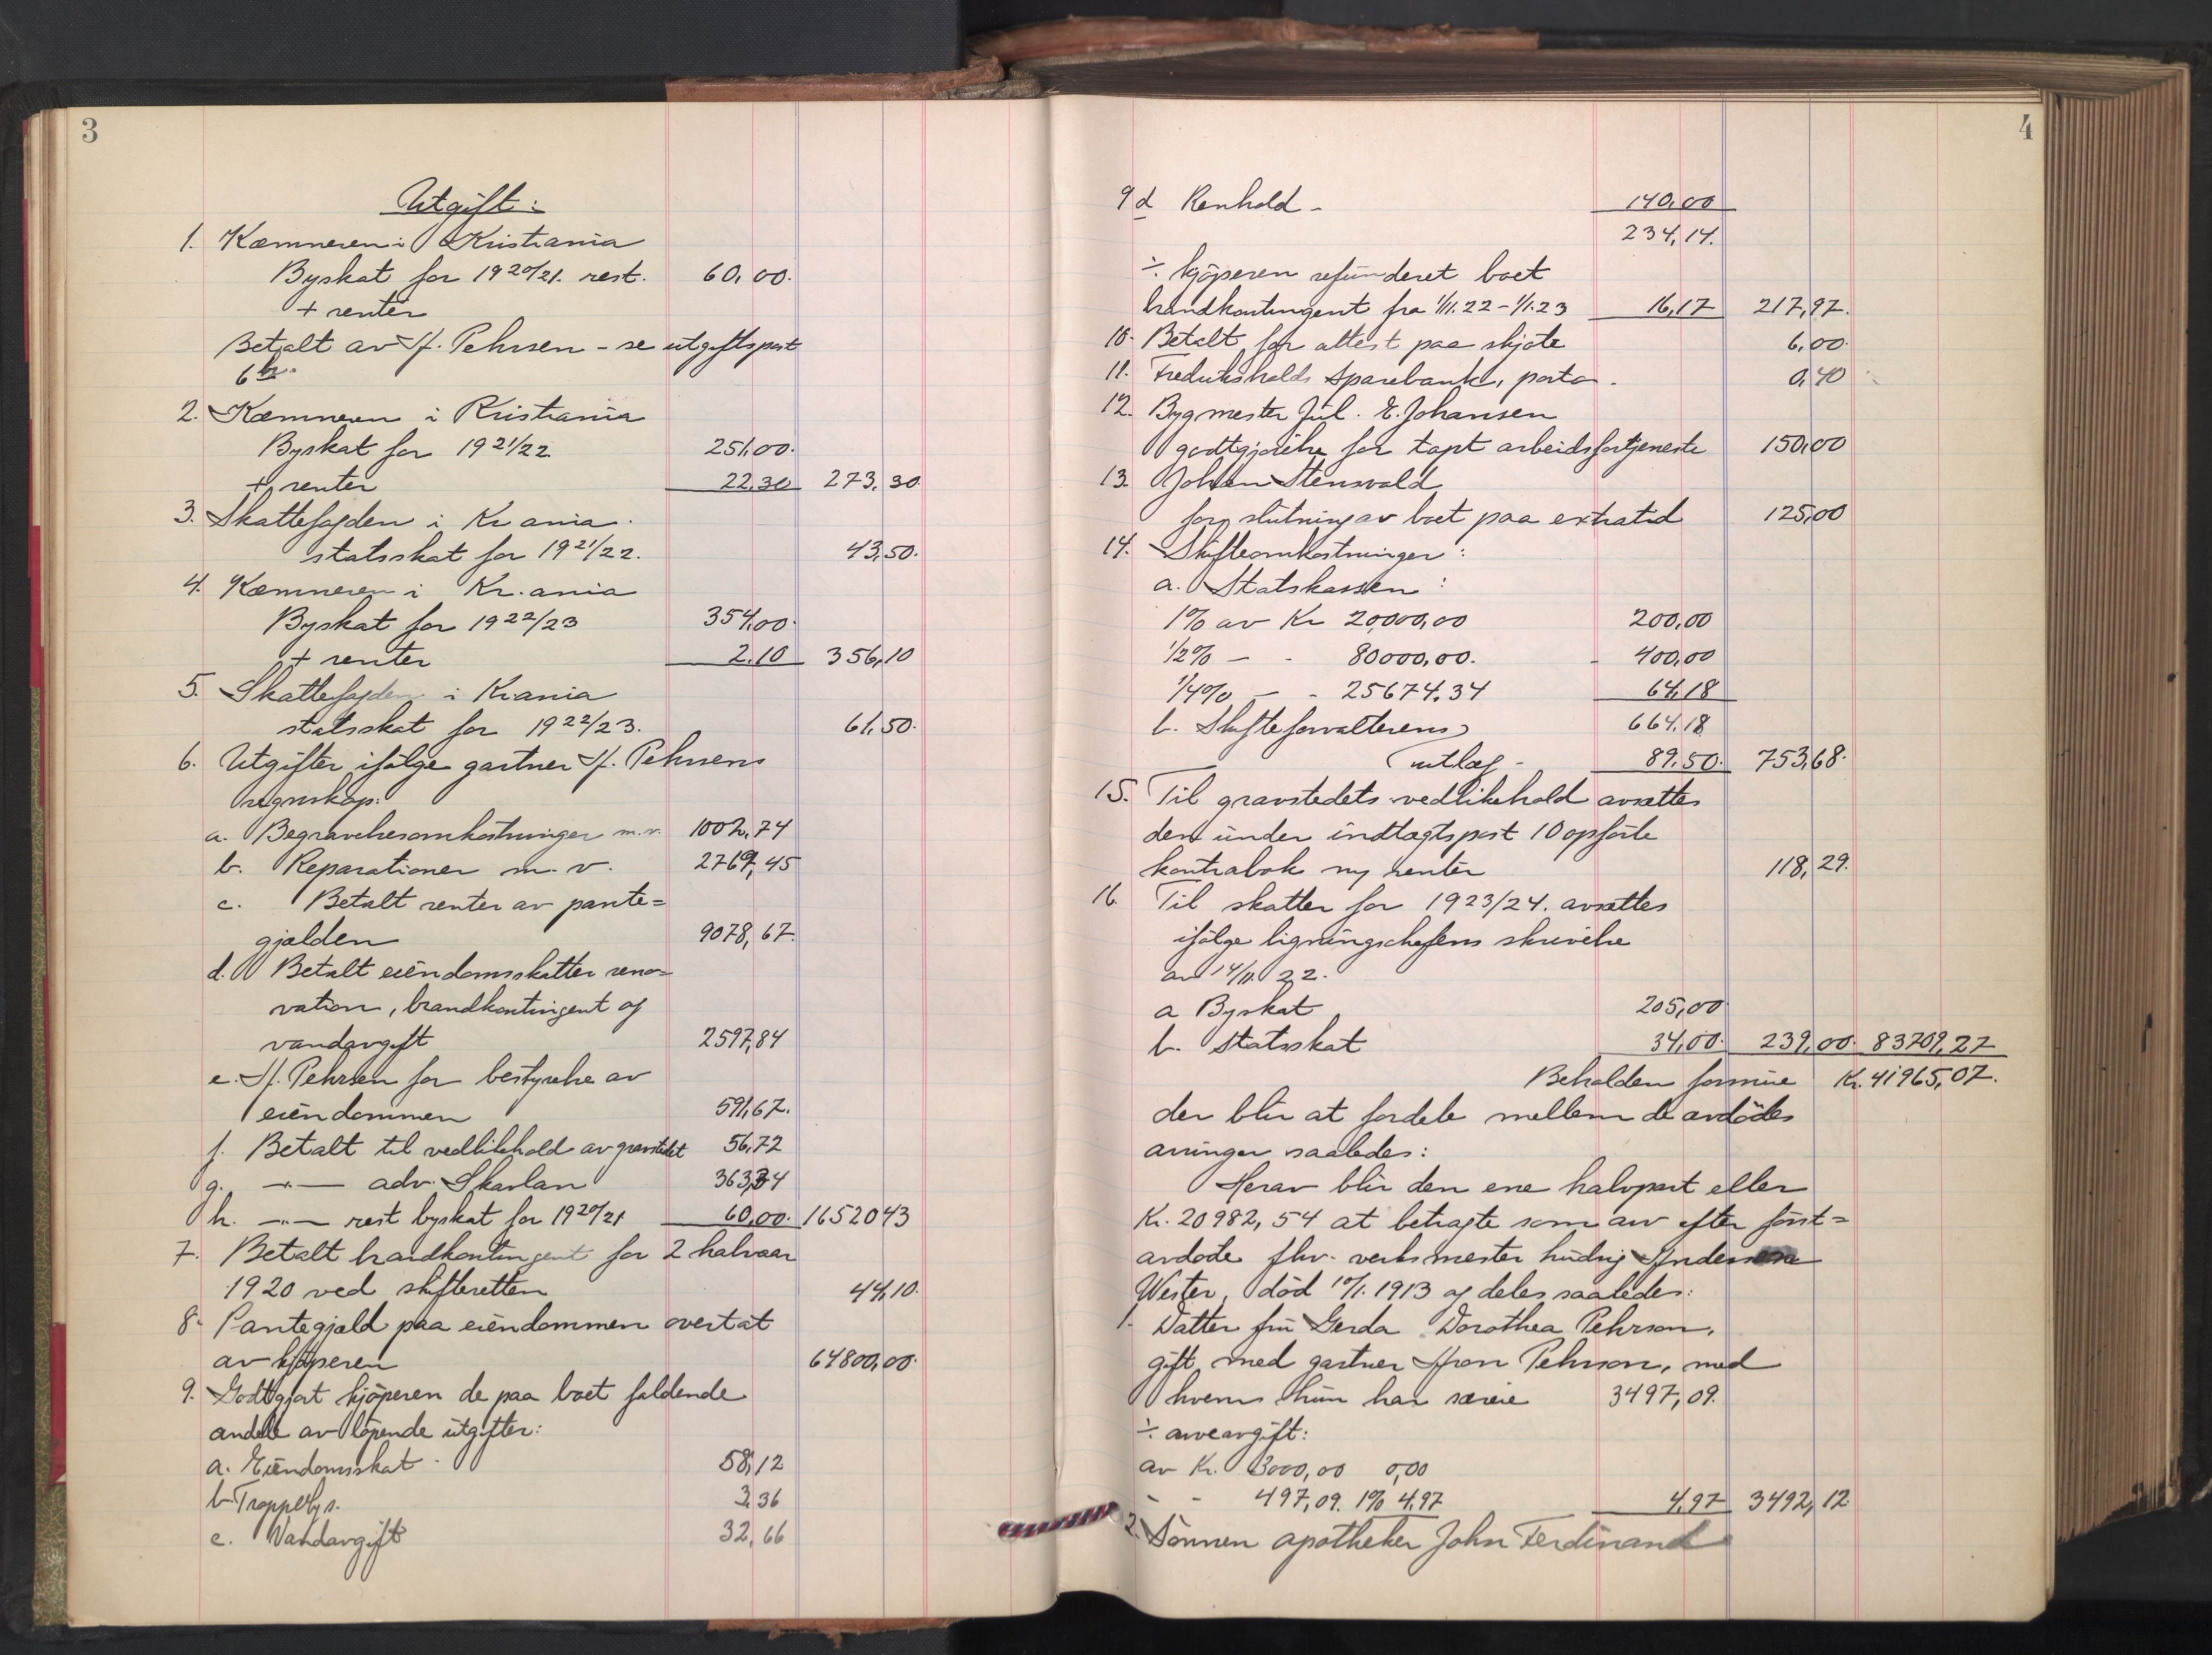 3
Utgift:
1. Kæmneren i Kristiania
Byskat for 1920/21. rest. 60,00.
+ renter
Betalt av H. Pehrsen - se utgiftspost
6 h.
2. Kæmneren i Kristiania
Byskat for 1921/22 251,00.
+ renter 22,30 273,30
3. Skattefogden i Kr ania.
statsskat for 1921/22. 43,50.
4. Kæmneren i Kr. ania
Byskat for 1922/23 354,00.
+ renter 2,10 356,10
5. Skattefogden i Kr ania
statsskat for 1922/23. 61,50.
6. Utgifter ifölge gartner H. Pehrsens
regnskap:
a. Begravelsesomkostninger m.v. 1002,74
b. Reparationer m. v. 2769,45
c. Betalt renter av pante=
gjælden 9078,67.
d. Betalt eiendomsskatter reno=
vation, brandkontingent og
vandavgift 2597,84
e. H. Pehrsen for bestyrelse av
eiendommen 591,67.
f. Betalt til vedlikehold av gravstedet 56,72
g. -"- adv. Skavlan 363,34
h. -"- rest byskat for 1920/21 60,00. 16520 43
7. Betalt brandkontingent for 2 halvaar
1920 ved skifteretten 44,10.
8. Pantegjæld paa eiendommen overtat
av kjöperen 64800,00.
9. Godtgjort kjöperen de paa boet faldende
andele av löpende utgifter:
a. Eiendomsskat. 58,12
b. Trappelys. 3,36
c. Vandavgift 32,66
4
9 d Renhold - 140,00
234,14.
÷ kjöperen refunderet boet
brandkontingent fra 1/11.22 - 1/1.23 16,17 217,97.
10. Betalt for attest paa skjöte 6,00.
11. Fredrikshalds Sparebank, porto. 0,40
12. Bygmester Jul. E. Johansen
godtgjörelse for tapt arbeidsfortjeneste 150,00
13. Johan Stensvold
for slutning av boet paa extratid 125,00
14. Skifteomkostninger:
a. Statskassen:
1% av Kr 20,000,00 200,00
1/2% - - 80000,00. - 400,00
1/4% - - 25674,34 64,18
b. Skifteforvalterens 664,18
utlæg - 89,50. 753,68.
15. Til gravstedets vedlikehold avsættes
den under indtægtspost 10 opförte
kontrabok og renter 118,29.
16. Til skatter for 1923/24. avsættes
ifölge ligningschefens skrivelse
av 14/11.22.
a Byskat 205,00
b. Statsskat 34,00. 239,00. 83709,27
Beholden formue Kr. 41965,07.
der blir at fordele mellem de avdödes
arvinger saaledes:
Herav blir den ene halvpart eller
Kr. 20982,54 at betragte som arv efter först=
avdöde fhv. verksmester Ludvig Andersen
Wester, död 10/1. 1913 og deles saaledes:
1. Datter fru Gerda Dorothea Pehrson,
gift med gartner Hson Pehrson, med
hvem hun har særeie 3497,09.
÷ arveavgift:
av Kr. 3000,00 0,00
- - 497,09. 1% 4,97 4,97 3492,12
2. Sönnen apotheker John Ferdinand